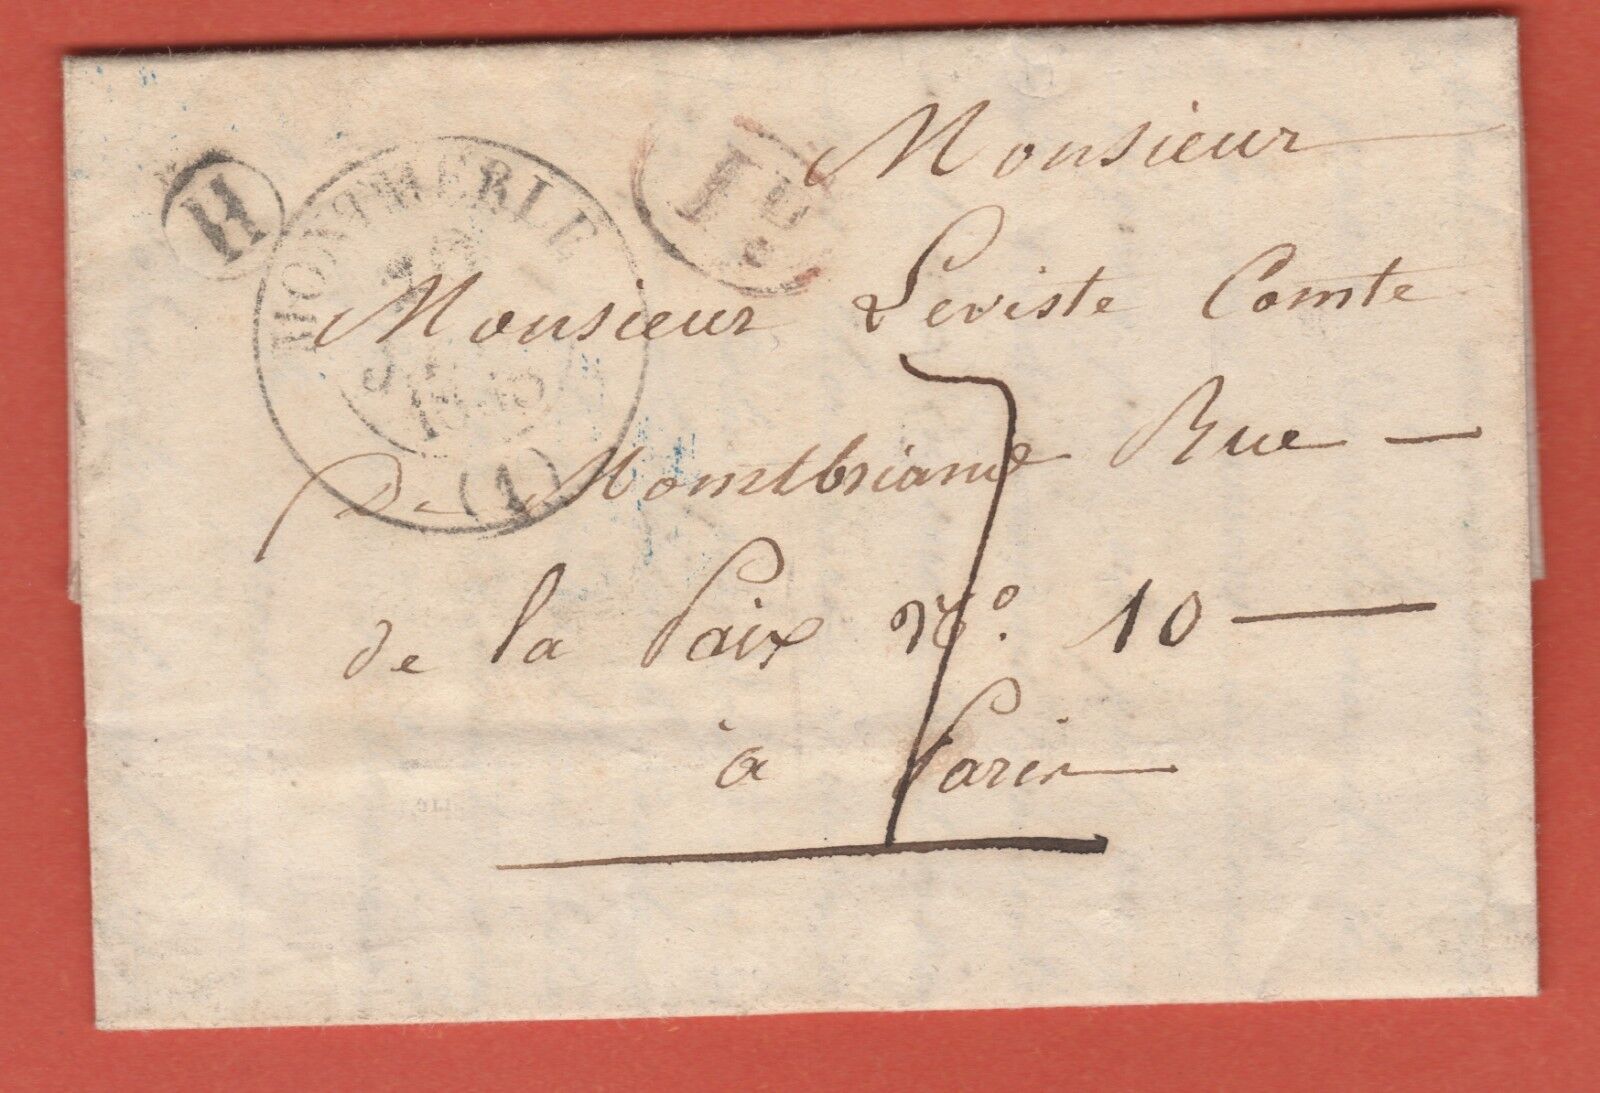 H
MONTMERLE
(1)
1D
Monsieur
Monsieur Leviste Comte
De Montbriand Rue —
de la Paix N.º 10 —
à Paris
7